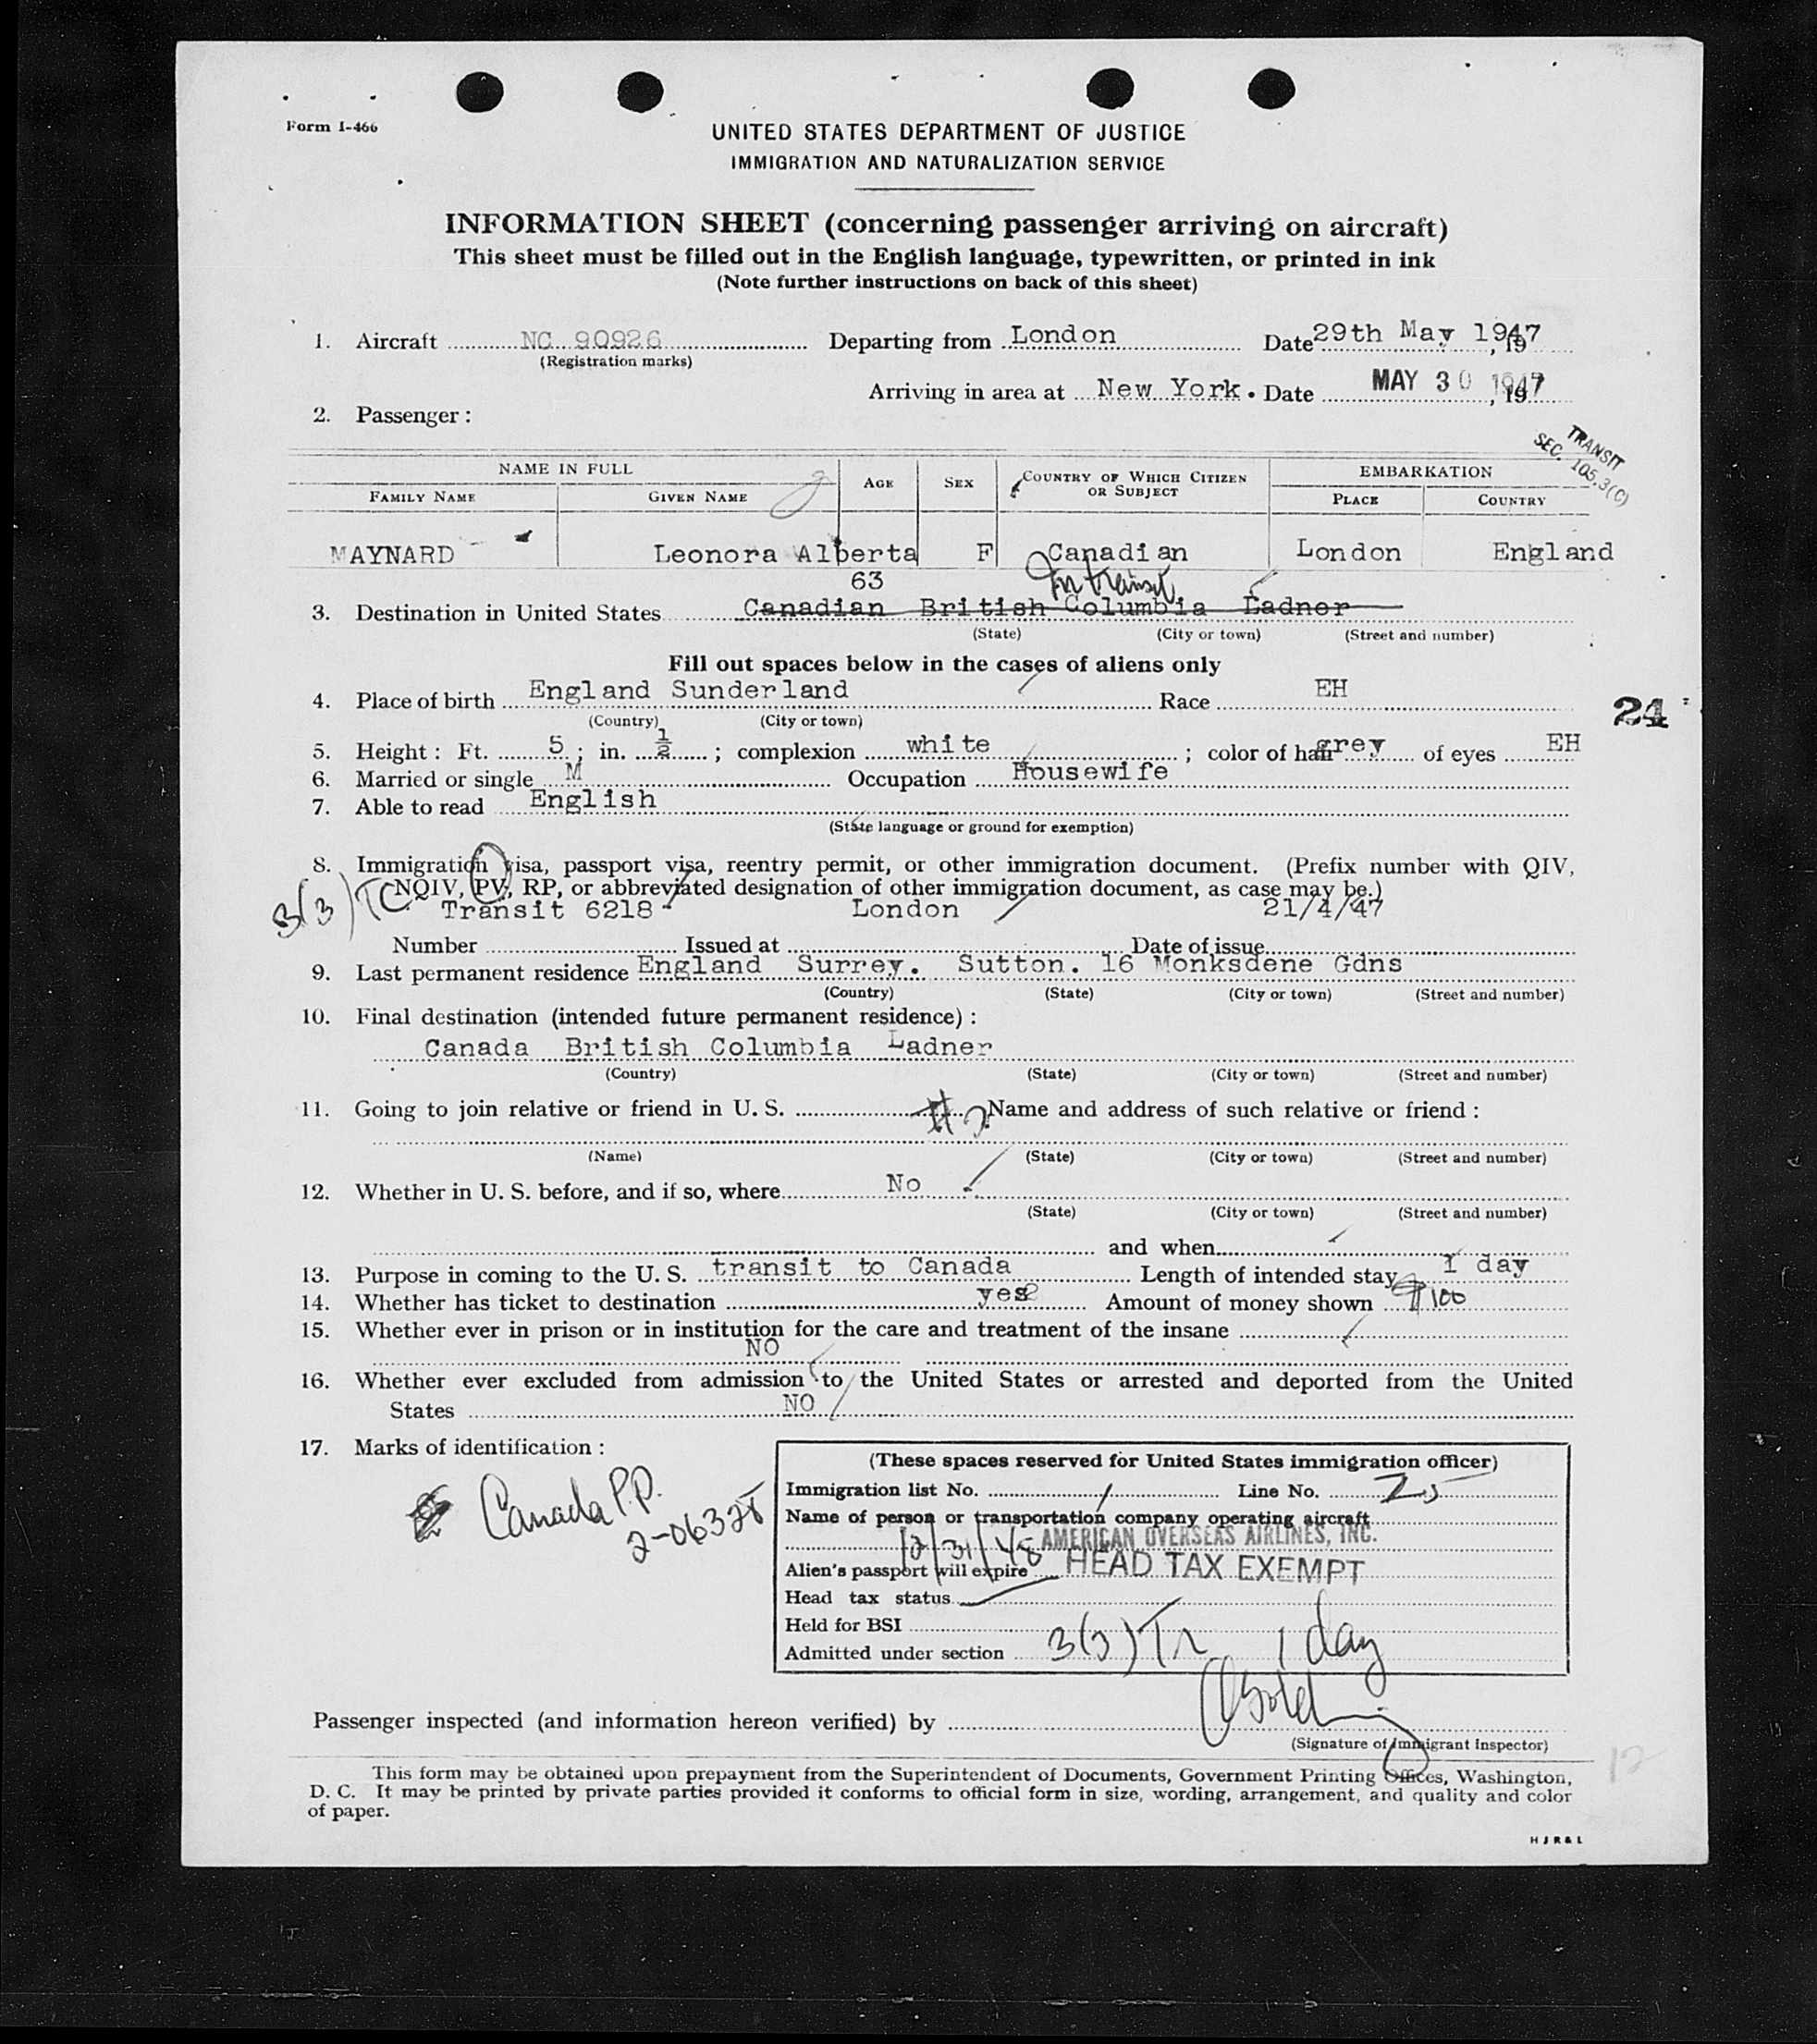 Form I-466
UNITED STATES DEPARTMENT OF JUSTICE
IMMIGRATION AND NATURALIZATION SERVICE
INFORMATION SHEET (concerning passenger arriving on aircraft)
This sheet must be filled out in the English language, typewritten, or printed in ink
(Note further instructions on back of this sheet)
1. Aircraft NC 90926 Departing from London Date 29th May 1947, 19
(Registration marks)
Arriving in area at New York. Date MAY 30 1947, 19
2. Passenger:
TRANSIT
SEC. 105.3(C)
NAME IN FULL AGE SEX COUNTRY OF WHICH CITIZEN OR SUBJECT EMBARKATION
FAMILY NAME GIVEN NAME PLACE COUNTRY
MAYNARD Leonora Alberta F Canadian London England
63 In transit
3. Destination in United States Canadian British Columbia Ladner
(State) (City or town) (Street and number)
Fill out spaces below in the cases of aliens only
4. Place of birth England Sunderland Race EH
(Country) (City or town)
24
5. Height: Ft. 5; in. 1/2; complexion white; color of hair grey of eyes EH
6. Married or single M Occupation Housewife
7. Able to read English
(State language or ground for exemption)
8. Immigration visa, passport visa, reentry permit, or other immigration document. (Prefix number with QIV,
NQIV, PV, RP, or abbreviated designation of other immigration document, as case may be.)
3(3) TC Transit 6218 London 21/4/47
Number Issued at Date of issue
9. Last permanent residence England Surrey. Sutton. 16 Monksdene Gdns
(Country) (State) (City or town) (Street and number)
10. Final destination (intended future permanent residence):
Canada British Columbia Ladner
(Country) (State) (City or town) (Street and number)
11. Going to join relative or friend in U. S. Name and address of such relative or friend:
(Name) (State) (City or town) (Street and number)
12. Whether in U. S. before, and if so, where No
(State) (City or town) (Street and number)
and when
13. Purpose in coming to the U. S. transit to Canada Length of intended stay 1 day
14. Whether has ticket to destination yes Amount of money shown $100
15. Whether ever in prison or in institution for the care and treatment of the insane
NO
16. Whether ever excluded from admission to the United States or arrested and deported from the United
States NO
17. Marks of identification:
Canada P.P.
(These spaces reserved for United States immigration officer)
Immigration list No. 1 Line No. 25
2-06328
Name of person or transportation company operating aircraft
AMERICAN OVERSEAS AIRLINES, INC.
Alien's passport will expire 12/31/48 HEAD TAX EXEMPT
Head tax status
Held for BSI
Admitted under section 3(3) Tr 1 day
Passenger inspected (and information hereon verified) by
(Signature of Immigrant Inspector)
12
This form may be obtained upon prepayment from the Superintendent of Documents, Government Printing Offices, Washington,
D. C. It may be printed by private parties provided it conforms to official form in size, wording, arrangement, and quality and color
of paper.
H J R & L